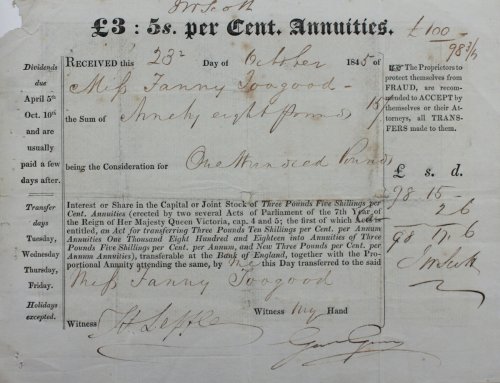 £3 : 5s. per Cent. Annuities.
£100 -
98 3/4
Dividends
due
April 5th
Oct. 10th
and are
usually
paid a few
days after.
Transfer
days
Tuesday,
Wednesday
Thursday,
Friday.
Holidays
excepted.
RECEIVED this 23d Day of October 1845 of
Miss Fanny Toogood
the Sum of Ninety eight Pounds
being the Consideration for One Hundred Pounds
Interest or Share in the Capital or Joint Stock of Three Pounds Five Shillings per
Cent. Annuities (erected by two several Acts of Parliament of the 7th Year of
the Reign of Her Majesty Queen Victoria, cap. 4 and 5; the first of which Acts is
entitled, an Act for transferring Three Pounds Ten Shillings per Cent. per Annum
Annuities One Thousand Eight Hundred and Eighteen into Annuities of Three
Pounds Five Shillings per Cent. per Annum, and New Three Pounds per Cent. per
Annum Annuities), transferable at the Bank of England, together with the Pro-
portional Annuity attending the same, by me this Day transferred to the said
Miss Fanny Toogood
Witness my Hand
Witness
The Proprietors to
protect themselves from
FRAUD, are recom-
mended to ACCEPT by
themselves or their At-
torneys, all TRANS-
FERS made to them.
£ s. d.
98 15 -
2 6
98 17 6